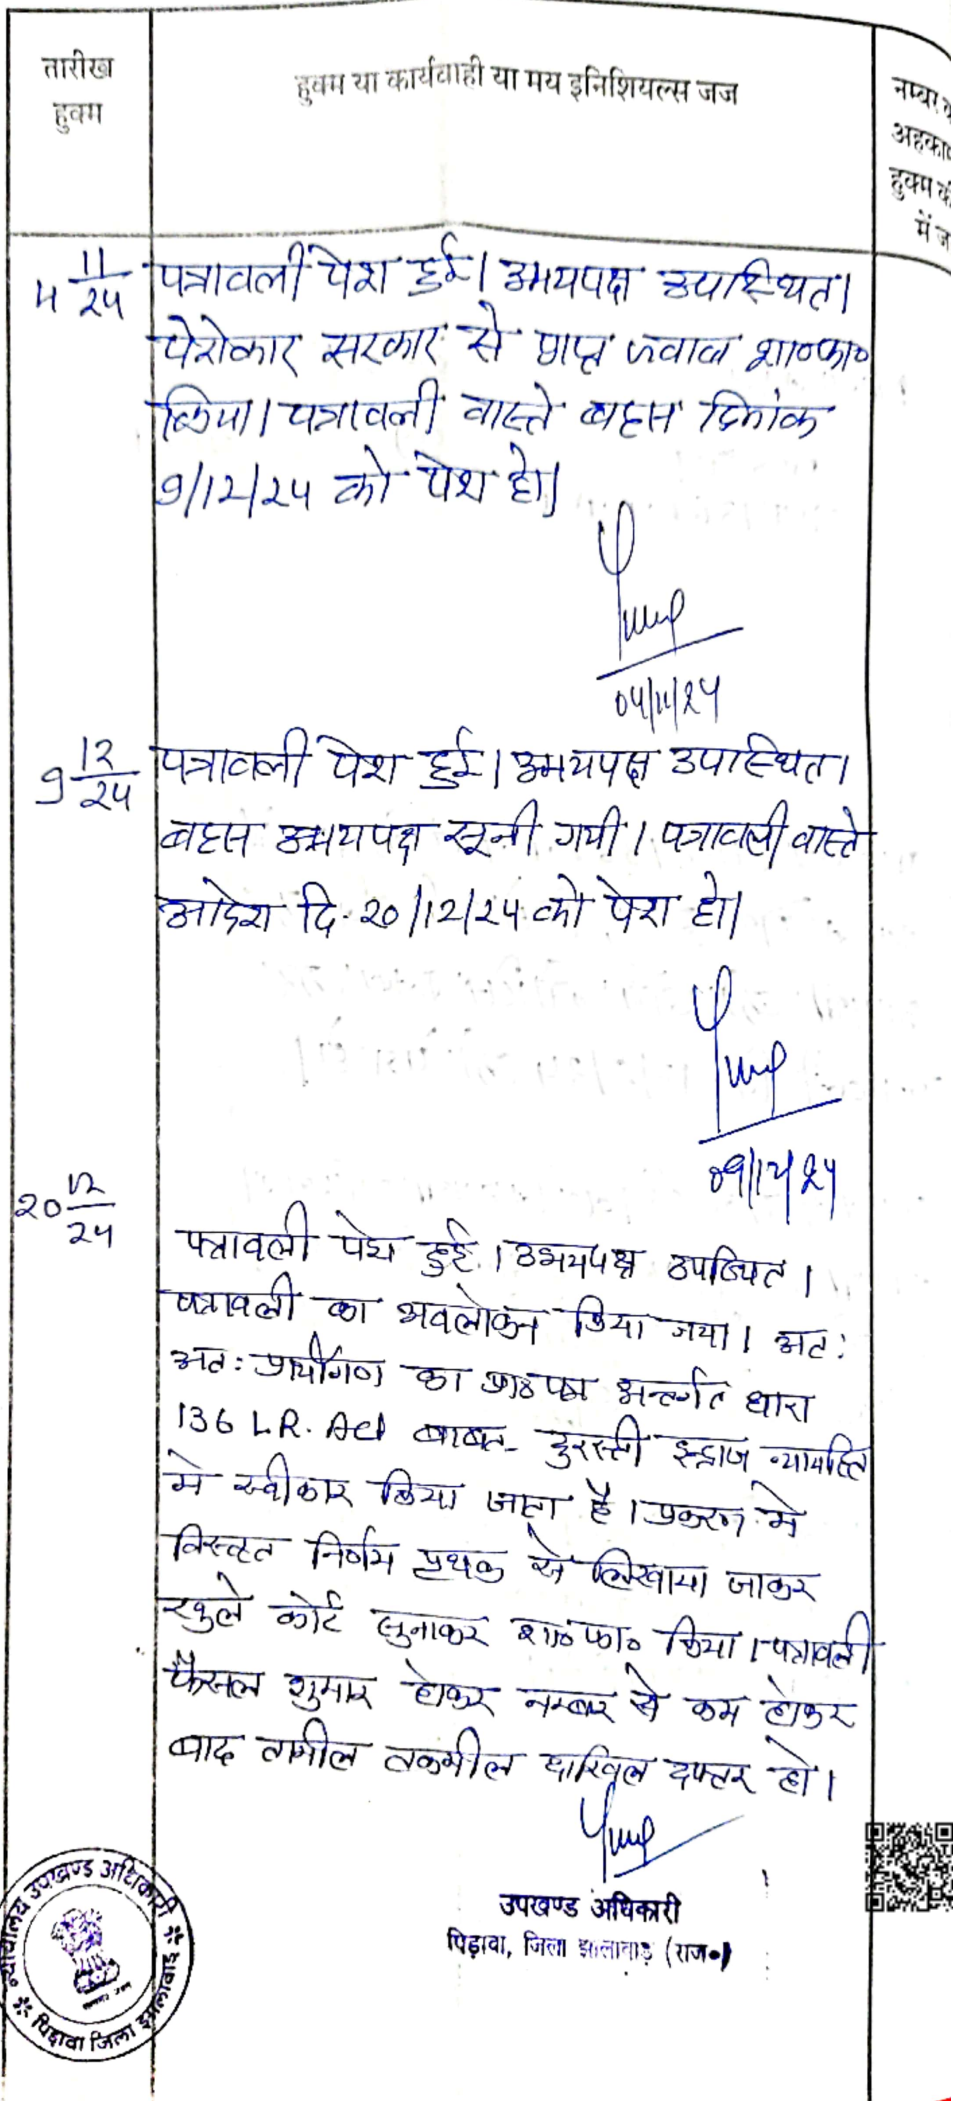 तारीख
हुक्म
हुक्म या कार्यवाही या मय इनिशियल्स जज
नम्बर व
अहका
हुक्म की
में ज
4 11/24
पत्रावली पेश हुई। उभयपक्ष उपस्थित।
पेरोकार सरकार से प्राप्त जवाब शा०फा०
किया। पत्रावली वास्ते बहस दिनांक
9/12/24 को पेश हो।
04/11/24
9 12/24
पत्रावली पेश हुई। उभयपक्ष उपस्थित।
बहस उभयपक्ष सूनी गयी। पत्रावली वास्ते
आदेश दि. 20/12/24 को पेश हो।
09/12/24
20 12/24
पत्रावली पेश हुई। उभयपक्ष उपस्थित।
पत्रावली का अवलोकन किया गया। अतः
अतः प्रार्थीगण का प्रा० पत्र अन्तर्गत धारा
136 L.R. Act बाबत दुरस्ती इन्द्राज न्यायहित
मे स्वीकार किया जाता है। प्रकरण मे
विस्तृत निर्णय पृथक से लिखाया जाकर
खुले कोर्ट सुनाकर शा० फा० किया। पत्रावली
फैसल शुमार होकर नम्बर से कम होकर
बाद तामील तकमील दाखिल दफ्तर हो।
उपखण्ड अधिकारी
पिड़ावा, जिला झालावाड़ (राज०)
न्यायालय उपखण्ड अधिकारी
पिड़ावा जिला झालावाड़